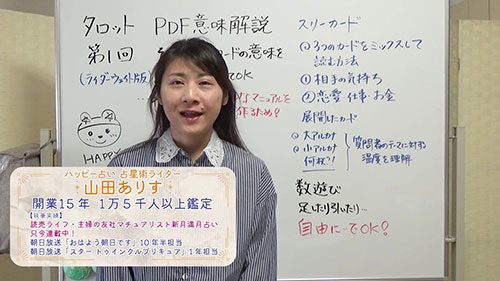 タロット PDF意味解説
第1回
カードの意味を
(ライダーウェイト版)
OK
マニュアルを
作るため?
HAPPY
スリーカード
3つのカードをミックスして
読む方法
① 相手の気持ち
② 恋愛・仕事・お金
展開したカード
大アルカナ
小アルカナ
何枚?!
質問者のテーマに対する
温度を理解
数遊び
足したり引いたり…
自由にーてOK?
ハッピー占い 占星術ライター
山田ありす
開業15年 1万5千人以上鑑定
【執筆実績】
読売ライフ・主婦の友社マチュアリスト新月満月占い
只今連載中!
朝日放送「おはよう朝日です」10年半担当
朝日放送「スター☆トゥインクルプリキュア」1年担当